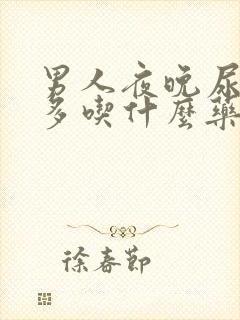 男人夜晚尿
多喫什麼藥
徐春節